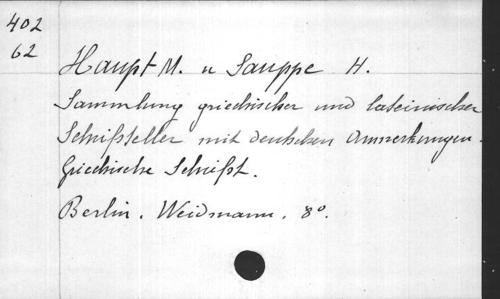 402
62
Haupt M. u Sauppe H.
Sammlung griechischer und lateinischer
Schriftsteller mit deutschen Anmerkungen.
Griechische Schrift.
Berlin. Weidmann. 8º.